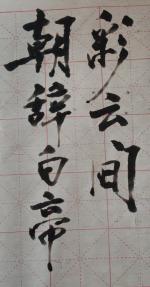 朝辞白帝
彩云间